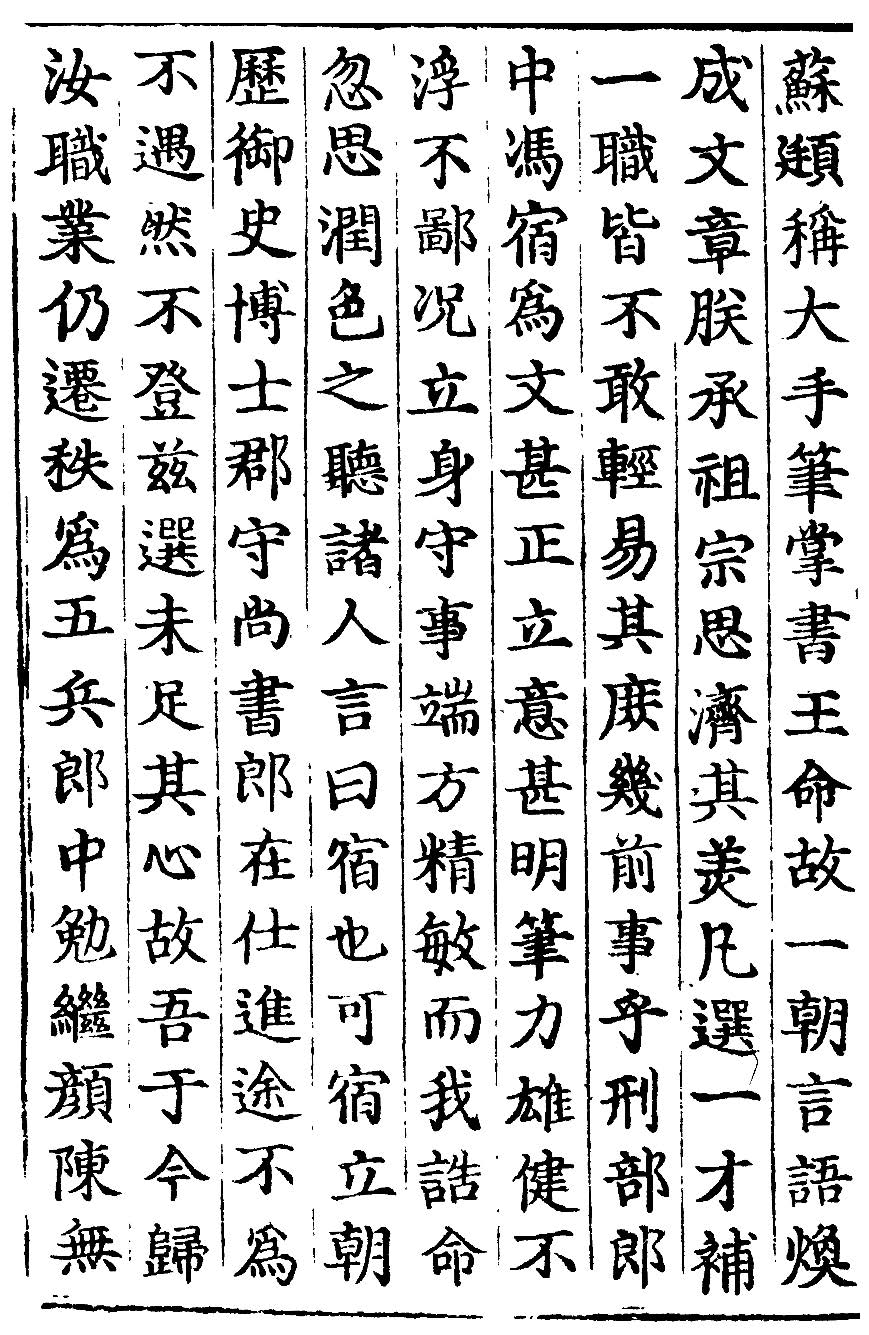 蘇頲稱大手筆掌書王命故一朝言語煥
成文章朕承祖宗思濟其美凡選一才補
一職皆不敢輕易其庶幾前事乎刑部郎
中馮宿爲文甚正立意甚明筆力雄健不
浮不鄙况立身守事端方精敏而我誥命
忽思潤色之聽諸人言曰宿也可宿立朝
歷御史博士郡守尚書郎在仕進途不爲
不遇然不登茲選未足其心故吾于今歸
汝職業仍遷秩爲五兵郎中勉繼顏陳無